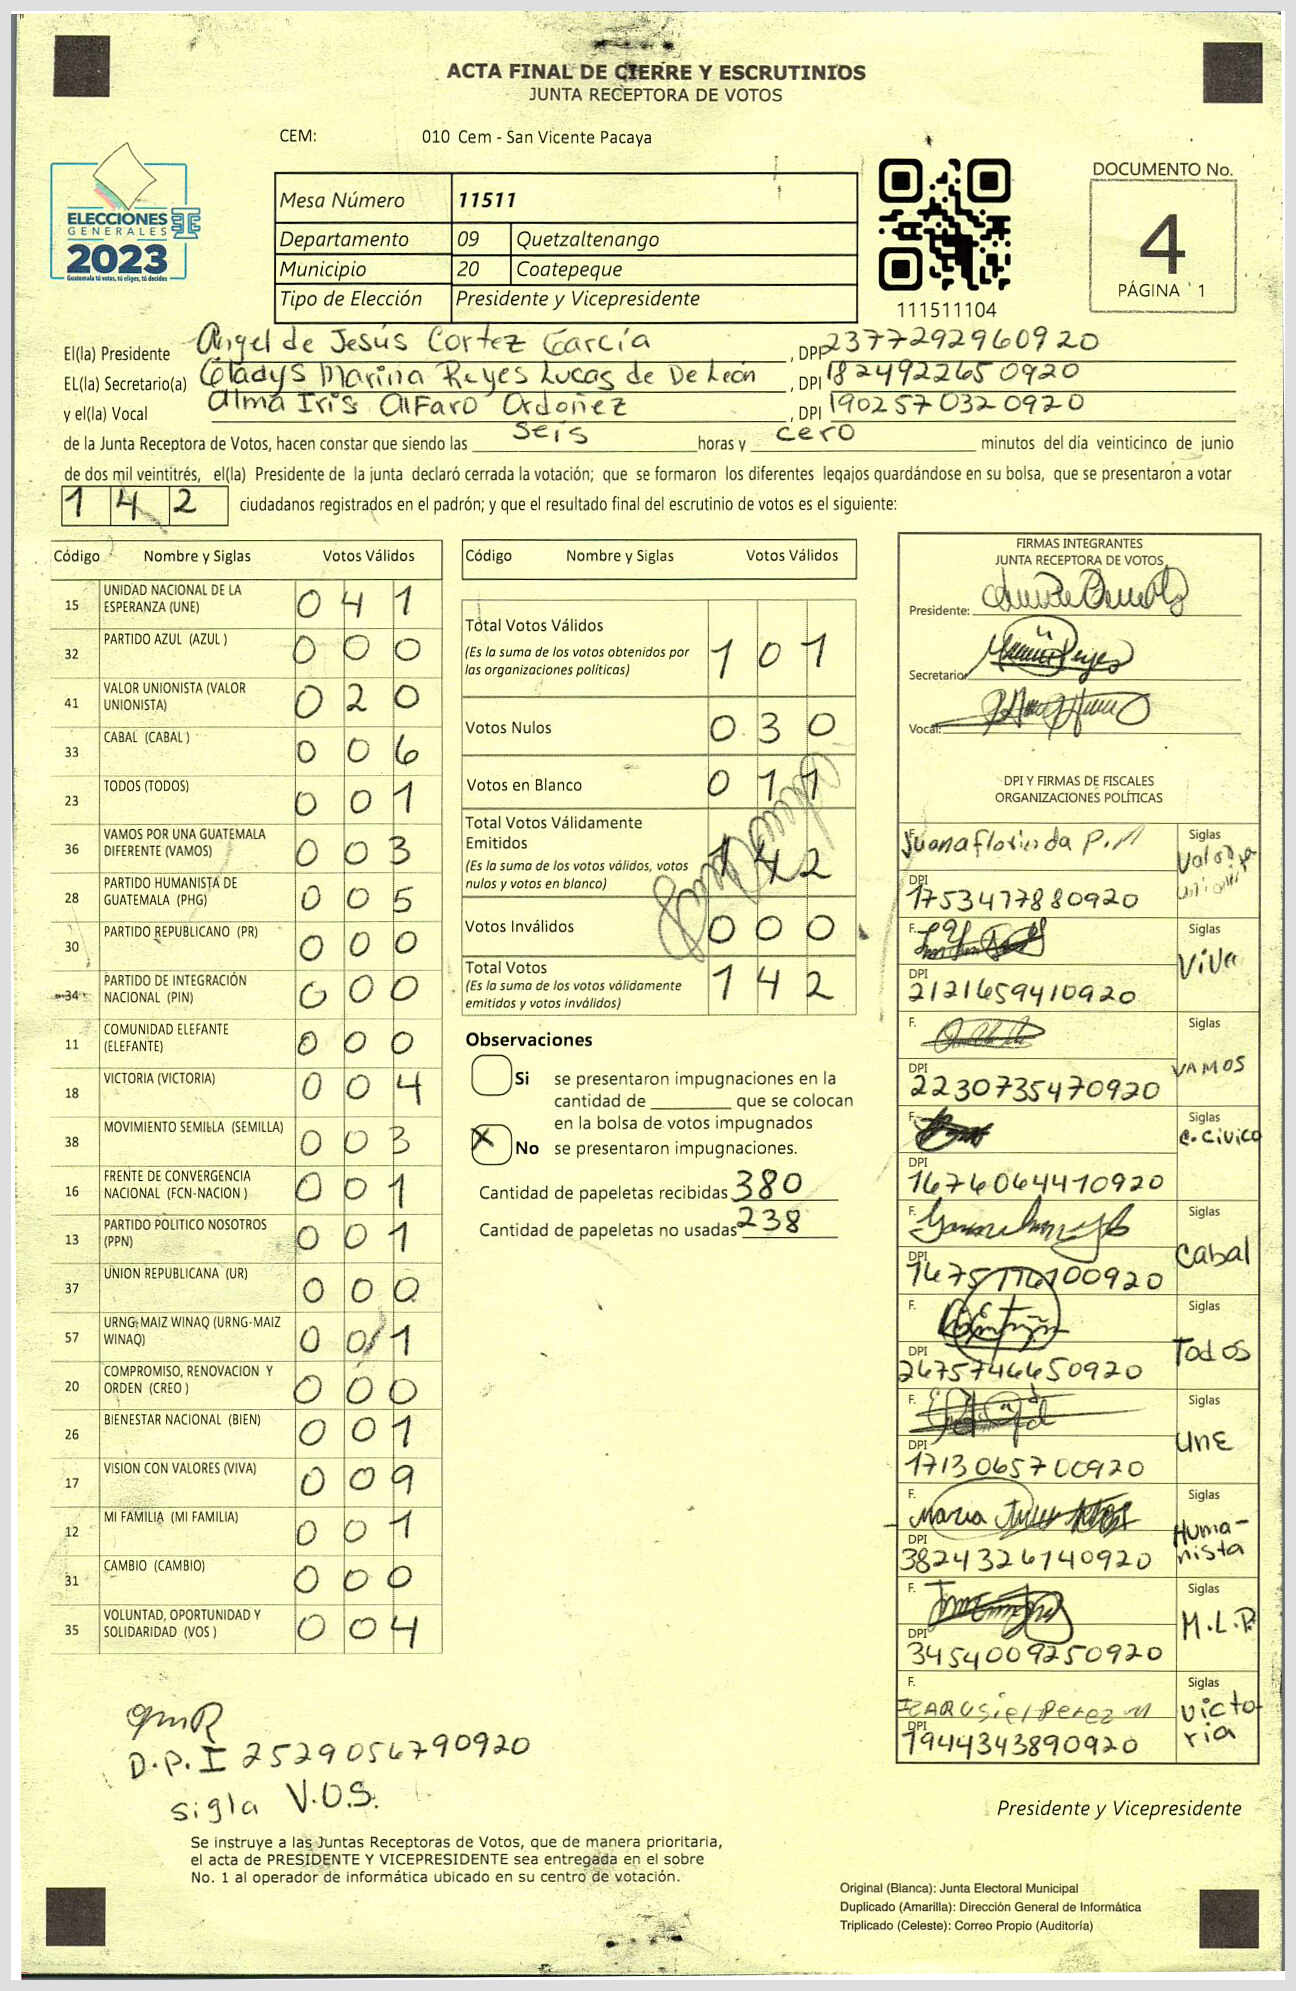 ACTA FINAL DE CIERRE Y ESCRUTINIOS
JUNTA RECEPTORA DE VOTOS
CEM: 010 Cem - San Vicente Pacaya
ELECCIONES
GENERALES
2023
Guatemala tú votas, tú eliges, tú decides
Mesa Número 11511
Departamento 09 Quetzaltenango
Municipio 20 Coatepeque
Tipo de Elección Presidente y Vicepresidente
111511104
DOCUMENTO No.
4
PÁGINA 1
El(la) Presidente Angel de Jesús Cortez García, DPI 2377292960920
EL(la) Secretario(a) Gladys Marina Reyes Lucas de De León, DPI 1824922650920
y el(la) Vocal Alma Iris Alfaro Ordoñez, DPI 1902570320920
de la Junta Receptora de Votos, hacen constar que siendo las seis horas y cero minutos del día veinticinco de junio
de dos mil veintitrés, el(la) Presidente de la junta declaró cerrada la votación; que se formaron los diferentes legajos quardándose en su bolsa, que se presentaron a votar
142 ciudadanos registrados en el padrón; y que el resultado final del escrutinio de votos es el siguiente:
Código Nombre y Siglas Votos Válidos
15 UNIDAD NACIONAL DE LA ESPERANZA (UNE) 041
32 PARTIDO AZUL (AZUL ) 000
41 VALOR UNIONISTA (VALOR UNIONISTA) 020
33 CABAL (CABAL ) 006
23 TODOS (TODOS) 001
36 VAMOS POR UNA GUATEMALA DIFERENTE (VAMOS) 003
28 PARTIDO HUMANISTA DE GUATEMALA (PHG) 005
30 PARTIDO REPUBLICANO (PR) 000
34 PARTIDO DE INTEGRACIÓN NACIONAL (PIN) 000
11 COMUNIDAD ELEFANTE (ELEFANTE) 000
18 VICTORIA (VICTORIA) 004
38 MOVIMIENTO SEMILLA (SEMILLA) 003
16 FRENTE DE CONVERGENCIA NACIONAL (FCN-NACION ) 001
13 PARTIDO POLITICO NOSOTROS (PPN) 001
37 UNION REPUBLICANA (UR) 000
57 URNG-MAIZ WINAQ (URNG-MAIZ WINAQ) 001
20 COMPROMISO, RENOVACION Y ORDEN (CREO ) 000
26 BIENESTAR NACIONAL (BIEN) 001
17 VISION CON VALORES (VIVA) 009
12 MI FAMILIA (MI FAMILIA) 001
31 CAMBIO (CAMBIO) 000
35 VOLUNTAD, OPORTUNIDAD Y SOLIDARIDAD (VOS ) 004
Código Nombre y Siglas Votos Válidos
Total Votos Válidos 101
(Es la suma de los votos obtenidos por
las organizaciones politicas)
Votos Nulos 030
Votos en Blanco 011
Total Votos Válidamente
Emitidos 142
(Es la suma de los votos válidos, votos
nulos y votos en blanco)
Votos Inválidos 000
Total Votos 142
(Es la suma de los votos válidamente
emitidos y votos inválidos)
Observaciones
Si se presentaron impugnaciones en la
cantidad de ________ que se colocan
en la bolsa de votos impugnados
X No se presentaron impugnaciones.
Cantidad de papeletas recibidas 380
Cantidad de papeletas no usadas 238
FIRMAS INTEGRANTES
JUNTA RECEPTORA DE VOTOS
Presidente:
Secretario
Vocal:
DPI Y FIRMAS DE FISCALES
ORGANIZACIONES POLÍTICAS
F. Juana florinda P. Siglas Valor unionista
DPI 1753477880920
F. Siglas VIVA
DPI 2121659410920
F. Siglas VAMOS
DPI 2230735470920
F. Siglas C. CIVICO
DPI 1676064410920
F. Siglas Cabal
DPI
F. Siglas Todos
DPI 2675746650920
F. Siglas UNE
DPI 1713065700920
F. Maria Siglas Humanista
DPI 3824326740920
F. Siglas M.L.P.
DPI 3454009250920
F. Perez Siglas Victoria
DPI 1944343890920
D.P.I 2529056790920
sigla V.O.S.
Presidente y Vicepresidente
Se instruye a las Juntas Receptoras de Votos, que de manera prioritaria,
el acta de PRESIDENTE Y VICEPRESIDENTE sea entregada en el sobre
No. 1 al operador de informática ubicado en su centro de votación.
Original (Blanca): Junta Electoral Municipal
Duplicado (Amarilla): Dirección General de Informática
Triplicado (Celeste): Correo Propio (Auditoría)